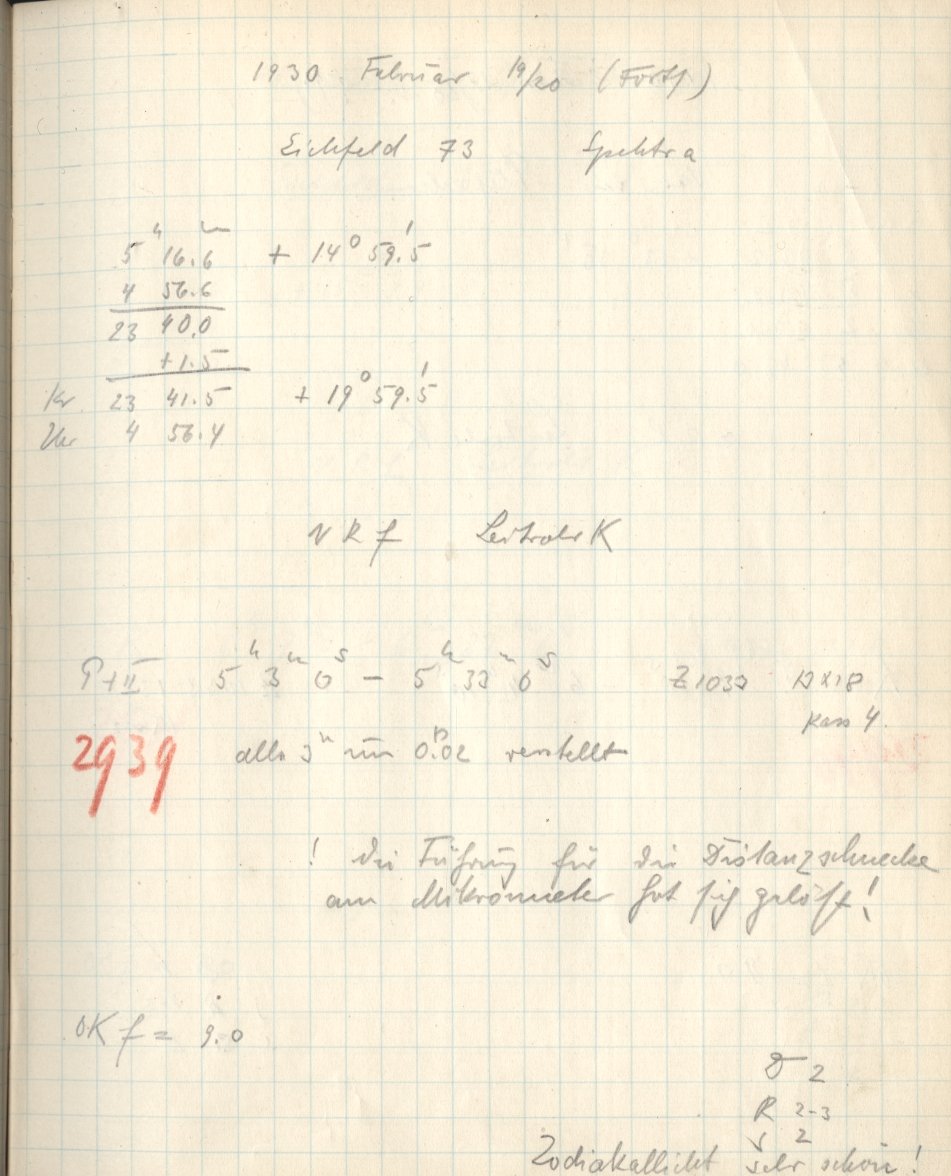 1930 Februar 19/20 (Forts)
Eichfeld 73 Spektra
5 h 16.6 m + 14° 59.'5
4 56.6
23 40.0
+1.5
Kr. 23 41.5 + 19° 59.'5
Uhr 4 56.4
N R f Leitrohr K
P + II 5h 3m 0s – 5h 33m 0s Z 1037
Kass 4.
2939 alle 3m um 0.02 verstellt
! Die Führung für die Distanzschnecke
am Mikrometer hat sich gelöst!
OK f = 9.0
D 2
R 2-3
S 2
Zodiakallicht sehr schön!